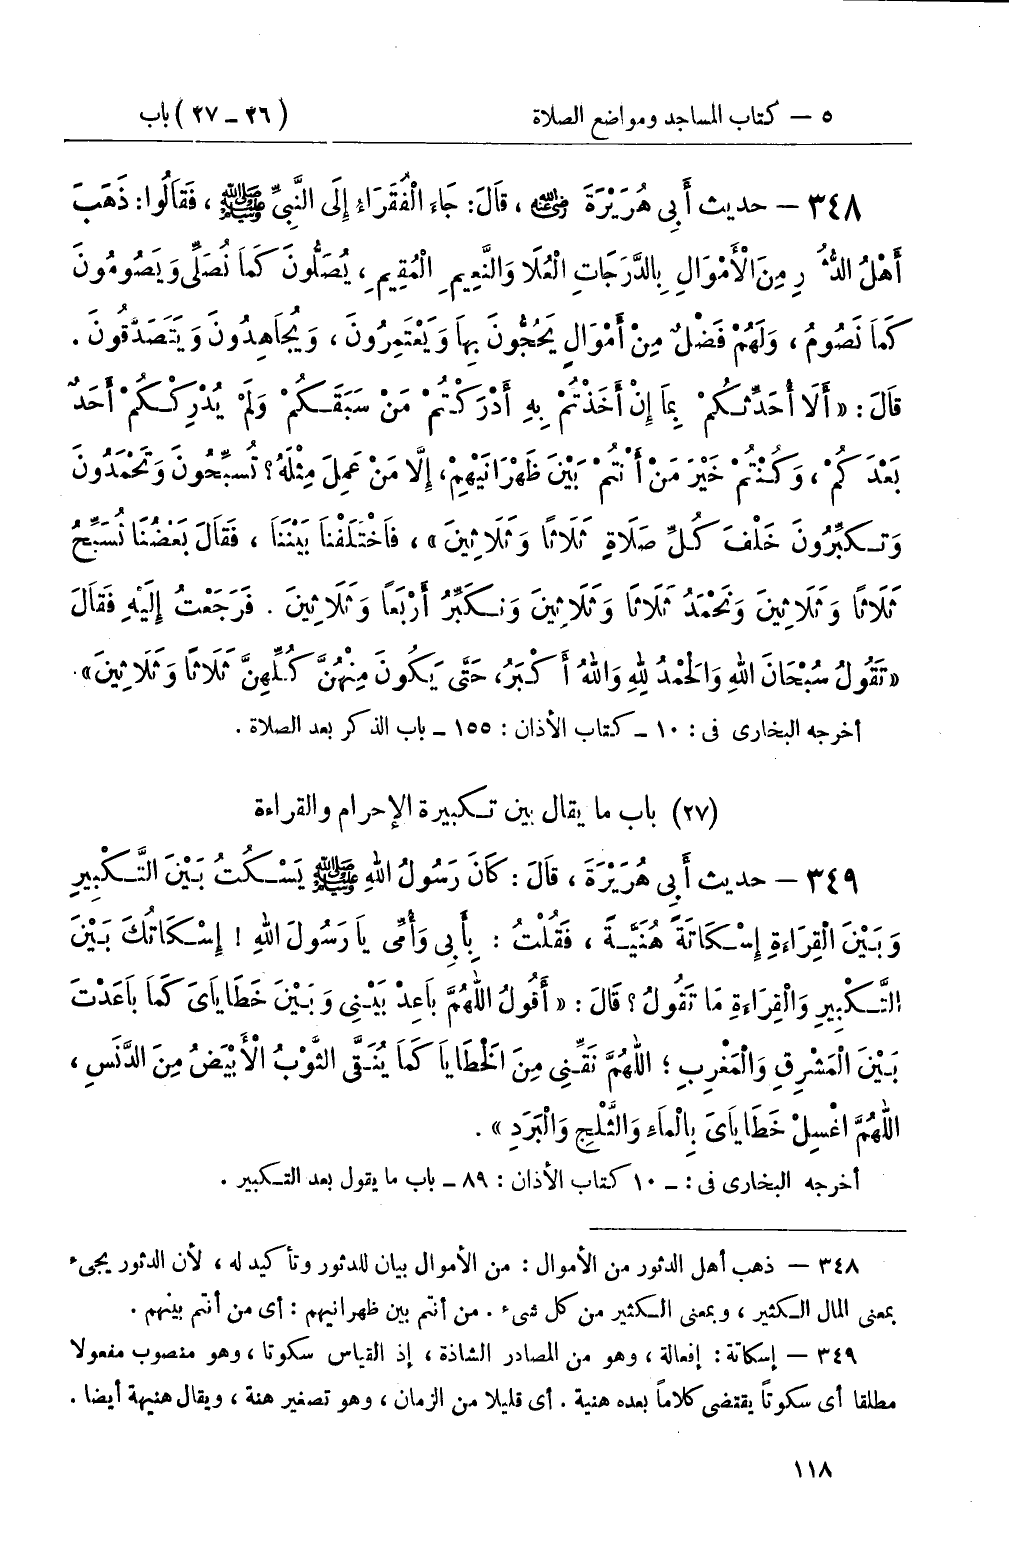 ٥ – كتاب المساجد ومواضع الصلاة (٢٦ – ٢٧) باب
٣٤٨ – حديث أَبِي هُرَيْرَةَ رضي الله عنه ، قَالَ: جَاءَ الْفُقَرَاءُ إِلَى النَّبِيِّ ﷺ ، فَقَالُوا: ذَهَبَ
أَهْلُ الدُّثُورِ مِنَ الْأَمْوَالِ بِالدَّرَجَاتِ الْعُلَا وَالنَّعِيمِ الْمُقِيمِ ، يُصَلُّونَ كَمَا نُصَلِّي وَيَصُومُونَ
كَمَا نَصُومُ ، وَلَهُمْ فَضْلٌ مِنْ أَمْوَالٍ يَحُجُّونَ بِهَا وَيَعْتَمِرُونَ ، وَيُجَاهِدُونَ وَيَتَصَدَّقُونَ .
قَالَ : « أَلَا أُحَدِّثُكُمْ بِمَا إِنْ أَخَذْتُمْ بِهِ أَدْرَكْتُمْ مَنْ سَبَقَكُمْ وَلَمْ يُدْرِكْكُمْ أَحَدٌ
بَعْدَكُمْ ، وَكُنْتُمْ خَيْرَ مَنْ أَنْتُمْ بَيْنَ ظَهْرَانَيْهِمْ، إِلَّا مَنْ عَمِلَ مِثْلَهُ؟ تُسَبِّحُونَ وَتَحْمَدُونَ
وَتُكَبِّرُونَ خَلْفَ كُلِّ صَلَاةٍ ثَلَاثًا وَثَلَاثِينَ » ، فَاخْتَلَفْنَا بَيْنَنَا ، فَقَالَ بَعْضُنَا نُسَبِّحُ
ثَلَاثًا وَثَلَاثِينَ وَنَحْمَدُ ثَلَاثًا وَثَلَاثِينَ وَنُكَبِّرُ أَرْبَعًا وَثَلَاثِينَ . فَرَجَعْتُ إِلَيْهِ فَقَالَ
« تَقُولُ سُبْحَانَ اللهِ وَالْحَمْدُ لِلهِ وَاللهُ أَكْبَرُ، حَتَّى يَكُونَ مِنْهُنَّ كُلِّهِنَّ ثَلَاثًا وَثَلَاثِينَ ».
أخرجه البخارى فى : ١٠ – كتاب الأذان : ١٥٥ – باب الذكر بعد الصلاة .
(٢٧) باب ما يقال بين تكبيرة الإحرام والقراءة
٣٤٩ – حديث أَبِي هُرَيْرَةَ ، قَالَ : كَانَ رَسُولُ اللهِ ﷺ يَسْكُتُ بَيْنَ التَّكْبِيرِ
وَبَيْنَ الْقِرَاءَةِ إِسْكَاتَةً هُنَيَّةً ، فَقُلْتُ : بِأَبِي وَأُمِّي يَا رَسُولَ اللهِ ! إِسْكَاتُكَ بَيْنَ
التَّكْبِيرِ وَالْقِرَاءَةِ مَا تَقُولُ ؟ قَالَ : « أَقُولُ اللَّهُمَّ بَاعِدْ بَيْنِي وَبَيْنَ خَطَايَايَ كَمَا بَاعَدْتَ
بَيْنَ الْمَشْرِقِ وَالْمَغْرِبِ ؛ اللَّهُمَّ نَقِّنِي مِنَ الْخَطَايَا كَمَا يُنَقَّى الثَّوْبُ الْأَبْيَضُ مِنَ الدَّنَسِ ،
اللَّهُمَّ اغْسِلْ خَطَايَايَ بِالْمَاءِ وَالثَّلْجِ وَالْبَرَدِ » .
أخرجه البخارى فى : – ١٠ كتاب الأذان : ٨٩ – باب ما يقول بعد التكبير .
٣٤٨ – ذهب أهل الدثور من الأموال : من الأموال بيان للدثور وتأكيد له ، لأن الدثور يجىء
بمعنى المال الكثير ، وبمعنى الكثير من كل شىء . من أنتم بين ظهرانيهم : أى من أنتم بينهم .
٣٤٩ – إسكاتة : إفعالة ، وهو من المصادر الشاذة ، إذ القياس سكوتا ، وهو منصوب مفعولا
مطلقا أى سكوتاً يقتضى كلاماً بعده هنية . أى قليلا من الزمان ، وهو تصغير هنة ، ويقال هنيهة أيضا .
١١٨